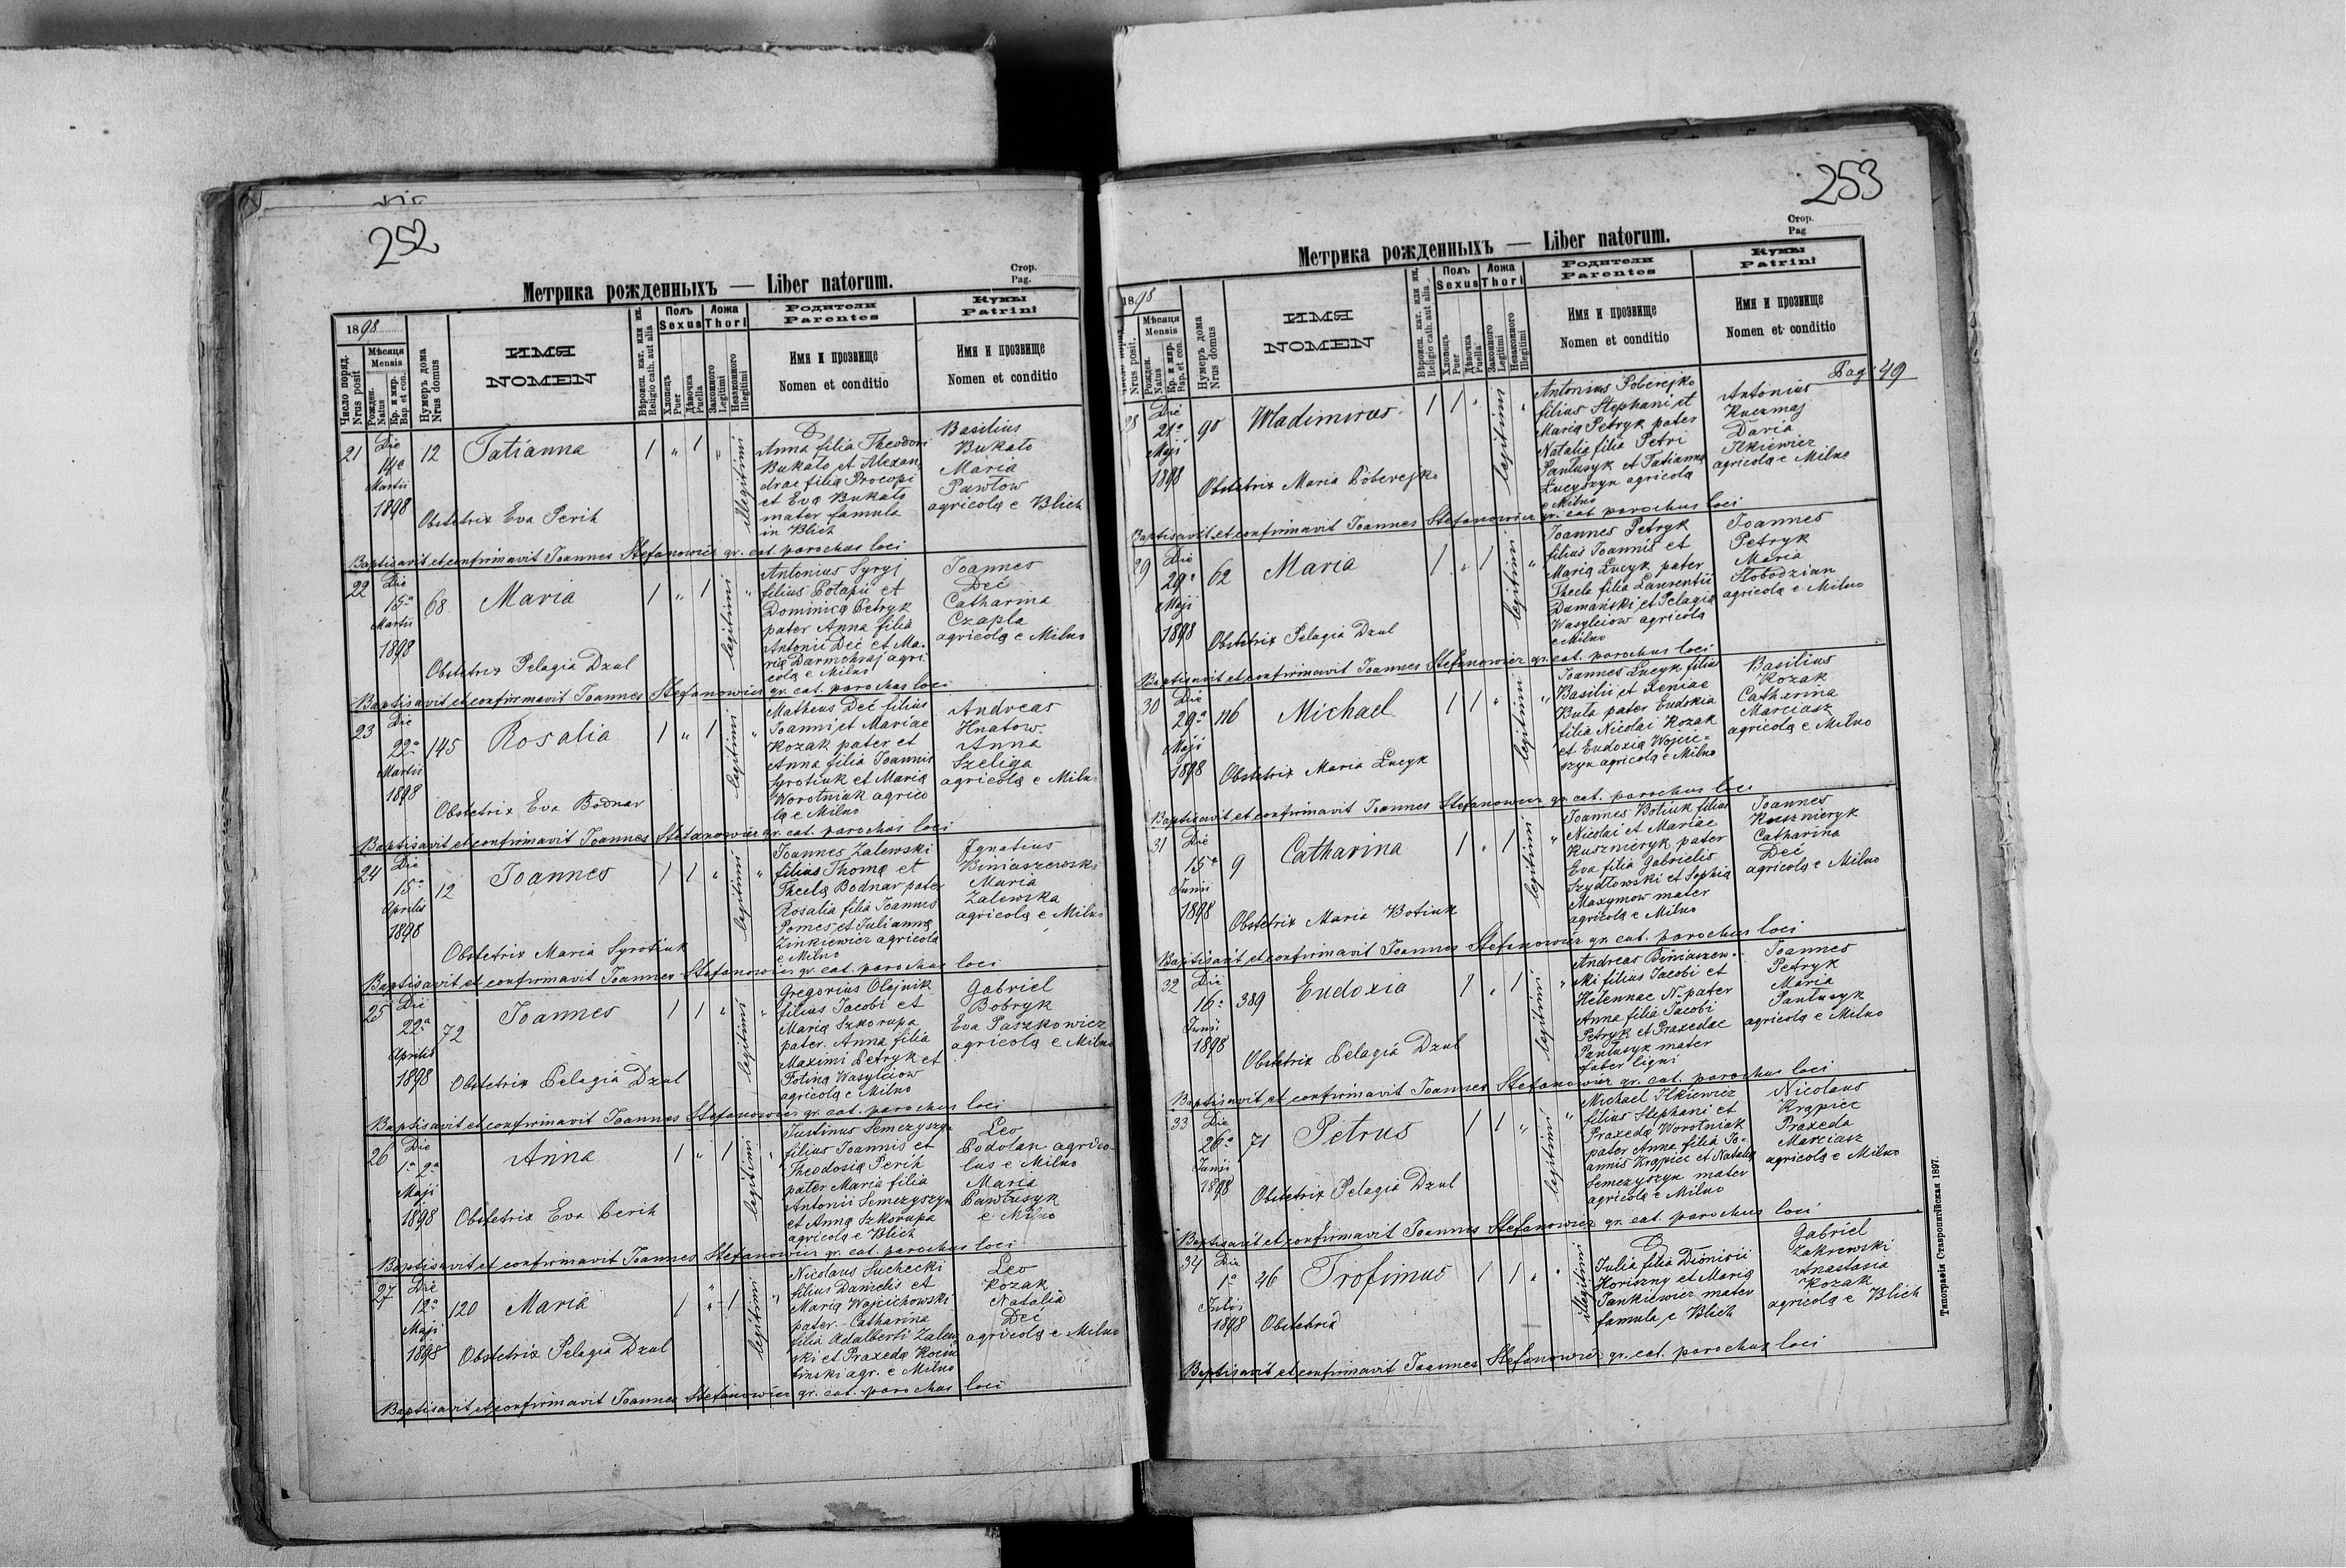 252
Стор.
Pag.
Метрика рожденныхъ — Liber natorum.
1898
Число поряд.
Nrus posit
Мѣсяця
Mensis
Рожден.
Natus
Кр. и мир.
Bap. et con.
Нумеръ дома
Nrus domus
ИМЯ
NOMEN
Вѣроисп. кат. или ин.
Religio cath. aut alia
Полъ
Sexus
Хлопець
Puer
Дѣвочка
Puella
Ложа
Thori
Законного
Legitimi
Незаконного
Illegitimi
Родители
Parentes
Имя и прозвище
Nomen et conditio
Кумы
Patrini
Имя и прозвище
Nomen et conditio
21 Die 14a Martii 1898 12 Tatianna 1 " 1 " illegitimi
Anna filia Theodori
Bukato et Alexan
drae filia Procopi
et Eva Bukato
mater famula
in Blich
Basilius
Bukato
Maria
Pawłow
agricolą e Blich
Obstetrix Eva Perih
Baptisavit et confirmavit Joannes Stefanowicz gr. cat. parochus loci
22 Die 15a Martii 1898 68 Maria 1 " 1 legitimi "
Antonius Syryj
filius Potapii et
Dominicą Petryk
pater Anna filia
Antonii Deć et Ma
rią Darmohraj agri
colą e Milno
Joannes
Deć
Catharina
Czapla
agricolą e Milno
Obstetrix Pelagia Dzul
Baptisavit et confirmavit Joannes Stefanowicz gr. cat. parochus loci
23 Die 22a Martii 1898 145 Rosalia 1 " 1 legitimi "
Matheus Deć filius
Joanni et Mariae
Kozak pater et
Anna filia Joannis
Syrotiuk et Marią
Worotniak agrico
lą e Milno
Andreas
Hnatow.
Anna
Szeliga
agricolą e Milno
Obstetrix Eva Bodnar
Baptisavit et confirmavit Joannes Stefanowicz gr. cat. parochus loci
24 Die 15a Aprilis 1898 12 Joannes 1 1 " legitimi "
Joannes Zalewski
filius Thomą et
Theclą Bodnar pater
Rosalia filia Joannis
Pomes et Julianną
Zinkiewicz agricolą
e Milno
Ignatius
Biniaszewski
Maria
Zalewska
agricolą e Milno
Obstetrix Maria Syrotiuk
Baptisavit et confirmavit Joannes Stefanowicz gr. cat. parochus loci
25 Die 22a Aprilis 1898 72 Joannes 1 1 " legitimi "
Gregorius Olejnik
filius Jacobi et
Marią Szkorupa
pater. Anna filia
Maximi Petryk et
Fotiną Wasylciow
agricolą e Milno
Gabriel
Bobryk
Eva Paszkowicz
agricolą e Milno
Obstetrix Pelagia Dzul
Baptisavit et confirmavit Joannes Stefanowicz gr. cat. parochus loci
26 Die 1a 2a Maji 1898 Anna 1 " 1 legitimi "
Justinus Semczyszyn
filius Joannis et
Theodosią Perih
pater Maria filia
Antonii Semczyszyn
et Anną Szkorupa
agricolą e Blich
Leo
Podolan agrico
lus e Milno
Maria
Pawłusyk
e Milno
Obstetrix Eva Perih
Baptisavit et confirmavit Joannes Stefanowicz gr. cat. parochus loci
27 Die 12a Maji 1898 120 Maria 1 " 1 legitimi "
Nicolaus Suchecki
filius Danielis et
Marią Wojcichowski
pater. - Catharina
filia Adalberti Zalew
ski et Praxedą Kociu
binski agr. e Milno
Leo
Kozak
Natalia
Deć
agricolą e Milno
Obstetrix Pelagia Dzul
Baptisavit et confirmavit Joannes Stefanowicz gr. cat. parochus loci
253
Стор.
Pag
Метрика рожденныхъ — Liber natorum.
1898
Nrus posit.
Мѣсяця
Mensis
Рожден.
Natus
Кр. и мир.
Bap. et con.
Нумеръ дома
Nrus domus
ИМЯ
NOMEN
Вѣроисп. кат. или ин.
Religio cath. aut alia
Полъ
Sexus
Хлопець
Puer
Дѣвочка
Puella
Ложа
Thori
Законного
Legitimi
Незаконного
Illegitimi
Родители
Parentes
Имя и прозвище
Nomen et conditio
Кумы
Patrini
Имя и прозвище
Nomen et conditio
Pag 49
28 Die 21a Maji 1898 90 Wladimirus 1 1 " legitimi "
Antonius Poberejko
filius Stephani et
Marią Petryk pater
Natalia filia Petri
Pantusyk et Tatianną
Lucyszyn agricolą
e Milno
Antonius
Kuczmaj
Daria
Ilkiewicz
agricolą e Milno
Obstetrix Maria Poberejko
Baptisavit et confirmavit Joannes Stefanowicz gr. cat. parochus loci
29 Die 29a Maji 1898 62 Maria 1 " 1 legitimi "
Joannes Petryk
filius Joannis et
Marią Lucyk pater
Thecla filia Laurentii
Dumański et Pelagią
Wasylciow agricolą
e Milno
Joannes
Petryk
Maria
Słobodzian
agricolą e Milno
Obstetrix Pelagia Dzul
Baptisavit et confirmavit Joannes Stefanowicz gr. cat. parochus loci
30 Die 29a Maji 1898 116 Michael 1 1 " legitimi "
Joannes Lucyk filius
Basilii et Xeniae
Buta pater Eudokia
filia Nicolai Kozak
et Eudoxią Wojcie=
szyn agricolą e Milno
Basilius
Kozak
Catharina
Marciasz
agricolą e Milno
Obstetrix Maria Lucyk
Baptisavit et confirmavit Joannes Stefanowicz gr. cat. parochus loci
31 Die 15a Junii 1898 9 Catharina 1 " 1 legitimi "
Joannes Botiuk filius
Nicolai et Mariae
Kusznieryk pater
Eva filia Gabrielis
Szydłowski et Sophią
Maxymow mater
agricolą e Milno
Joannes
Kusznieryk
Catharina
Deć
agricolą e Milno
Obstetrix Maria Botiuk
Baptisavit et confirmavit Joannes Stefanowicz gr. cat. parochus loci
32 Die 16a Junii 1898 389 Eudoxia 1 " 1 legitimi "
Andreas Biniaszew-
ski filius Jacobi et
Helennae N. pater
Anna filia Jacobi
Petryk et Praxedae
Pantusyk mater
faber ligni
Joannes
Petryk
Maria
Pantusyk
agricolą e Milno
Obstetrix Pelagia Dzul
Baptisavit et confirmavit Joannes Stefanowicz gr. cat. parochus loci
33 Die 26a Junii 1898 71 Petrus 1 1 " legitimi "
Michael Ilkiewicz
filius Stephani et
Praxedą Worotniak
pater Anna filia Jo=
annis Krąpiec et Natalią
Semczyszyn mater
agricolą e Milno
Nicolaus
Krąpiec
Praxeda
Marciasz
agricolą e Milno
Obstetrix Pelagia Dzul
Baptisavit et confirmavit Joannes Stefanowicz gr. cat. parochus loci
34 Die 1a Julii 1898 46 Trofimus 1 1 " " illegitimi
Julia filia Dionisii
Horiszny et Marią
Jankiewicz mater
famula e Blich
Gabriel
Zakrewski
Anastasia
Kozak
agricolą e Blich
Obstetrix
Baptisavit et confirmavit Joannes Stefanowicz gr. cat. parochus loci
Типографія Ставропигійская 1897.